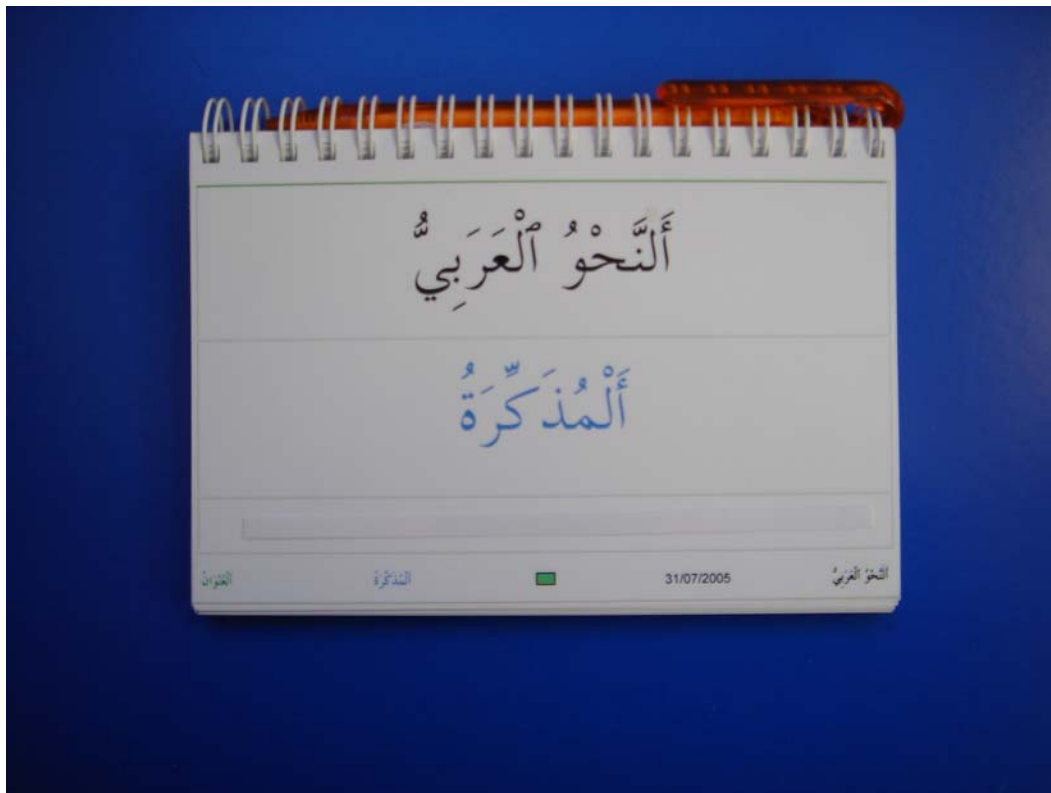 أَلنَّحْوُ ٱلْعَرَبِيُّ
أَلْمُذَكِّرَةُ
النَّحْوُ الْعَرَبِيُّ 31/07/2005 الْمُذَكِّرَةُ الْعُنْوَانُ